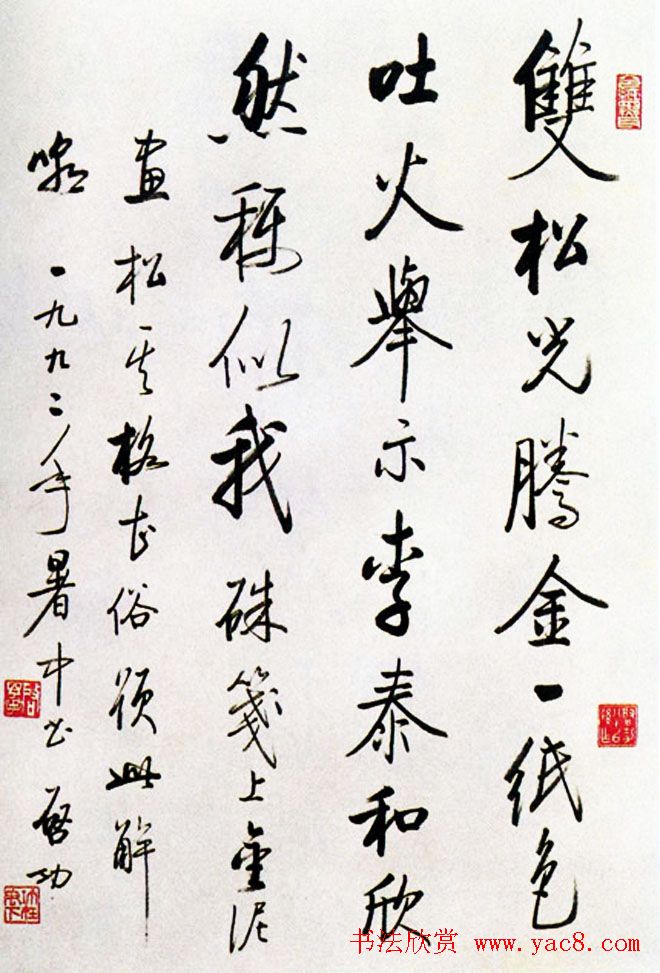 雙松光騰金一紙色
吐火舉示李泰和欣
然稱似我硃箋上金泥
畫松其格甚俗須此解
嘲 一九九二年暑中書 啟功
书法欣赏 www.yac8.com